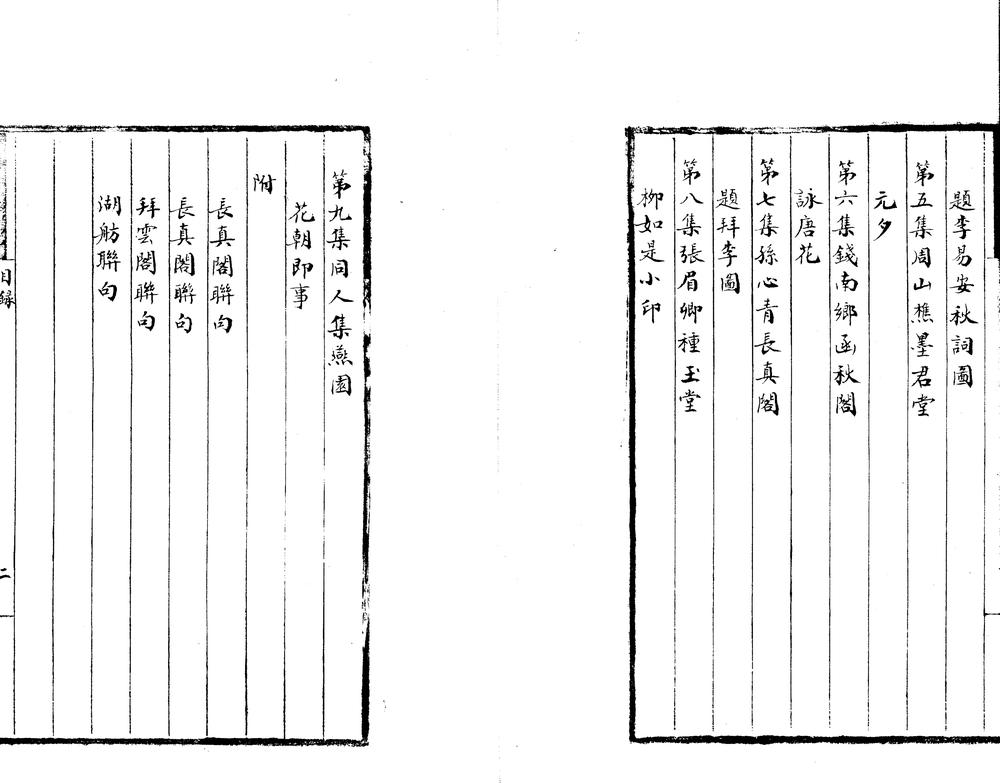 題李易安秋詞圖
第五集周山樵墨君堂
元夕
第六集錢南鄉函秋閣
詠唐花
第七集孫心青長真閣
題拜李圖
第八集張眉卿種玉堂
柳如是小印
第九集同人集燕園
花朝即事
附
長真閣聯句
長真閣聯句
拜雲閣聯句
湖舫聯句
目録
二